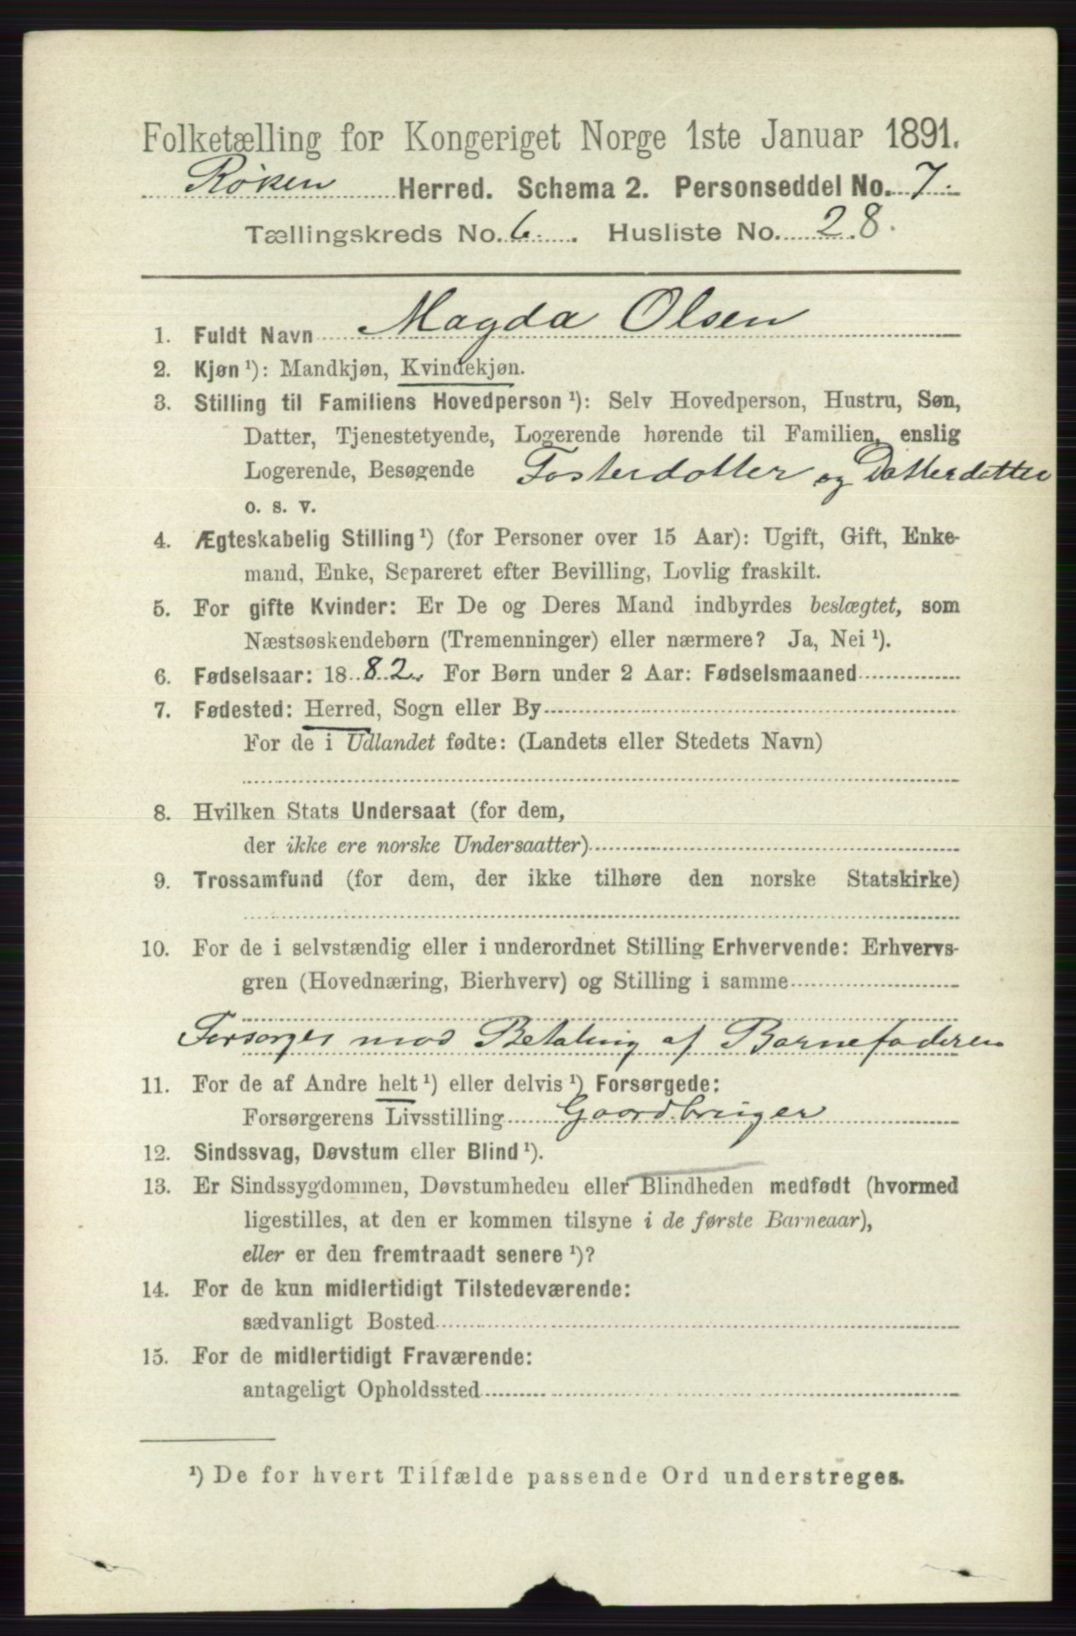 Folketælling for Kongeriget Norge 1ste Januar 1891.
Røken Herred. Schema 2. Personseddel No. 7.
Tællingskreds No. 6. Husliste No. 28.
1. Fuldt Navn Magda Olsen
2. Kjøn ¹): Mandkjøn, Kvindekjøn.
3. Stilling til Familiens Hovedperson ¹): Selv Hovedperson, Hustru, Søn,
Datter, Tjenestetyende, Logerende hørende til Familien, enslig
Logerende, Besøgende Fosterdotter og Datterdotter
o. s. v.
4. Ægteskabelig Stilling ¹) (for Personer over 15 Aar): Ugift, Gift, Enke-
mand, Enke, Separeret efter Bevilling, Lovlig fraskilt.
5. For gifte Kvinder: Er De og Deres Mand indbyrdes beslægtet, som
Næstsøskendebørn (Tremenninger) eller nærmere? Ja, Nei ¹).
6. Fødselsaar: 1882. For Børn under 2 Aar: Fødselsmaaned
7. Fødested: Herred, Sogn eller By
For de i Udlandet fødte: (Landets eller Stedets Navn)
8. Hvilken Stats Undersaat (for dem,
der ikke ere norske Undersaatter)
9. Trossamfund (for dem, der ikke tilhøre den norske Statskirke)
10. For de i selvstændig eller i underordnet Stilling Erhvervende: Erhvervs-
gren (Hovednæring, Bierhverv) og Stilling i samme
Forsorges mod Betaling af Barnefaderen
11. For de af Andre helt ¹) eller delvis ¹) Forsørgede:
Forsørgerens Livsstilling Gaardbruger
12. Sindssvag, Døvstum eller Blind ¹).
13. Er Sindssygdommen, Døvstumheden eller Blindheden medfødt (hvormed
ligestilles, at den er kommen tilsyne i de første Barneaar),
eller er den fremtraadt senere ¹)?
14. For de kun midlertidigt Tilstedeværende:
sædvanligt Bosted
15. For de midlertidigt Fraværende:
antageligt Opholdssted
¹) De for hvert Tilfælde passende Ord understreges.